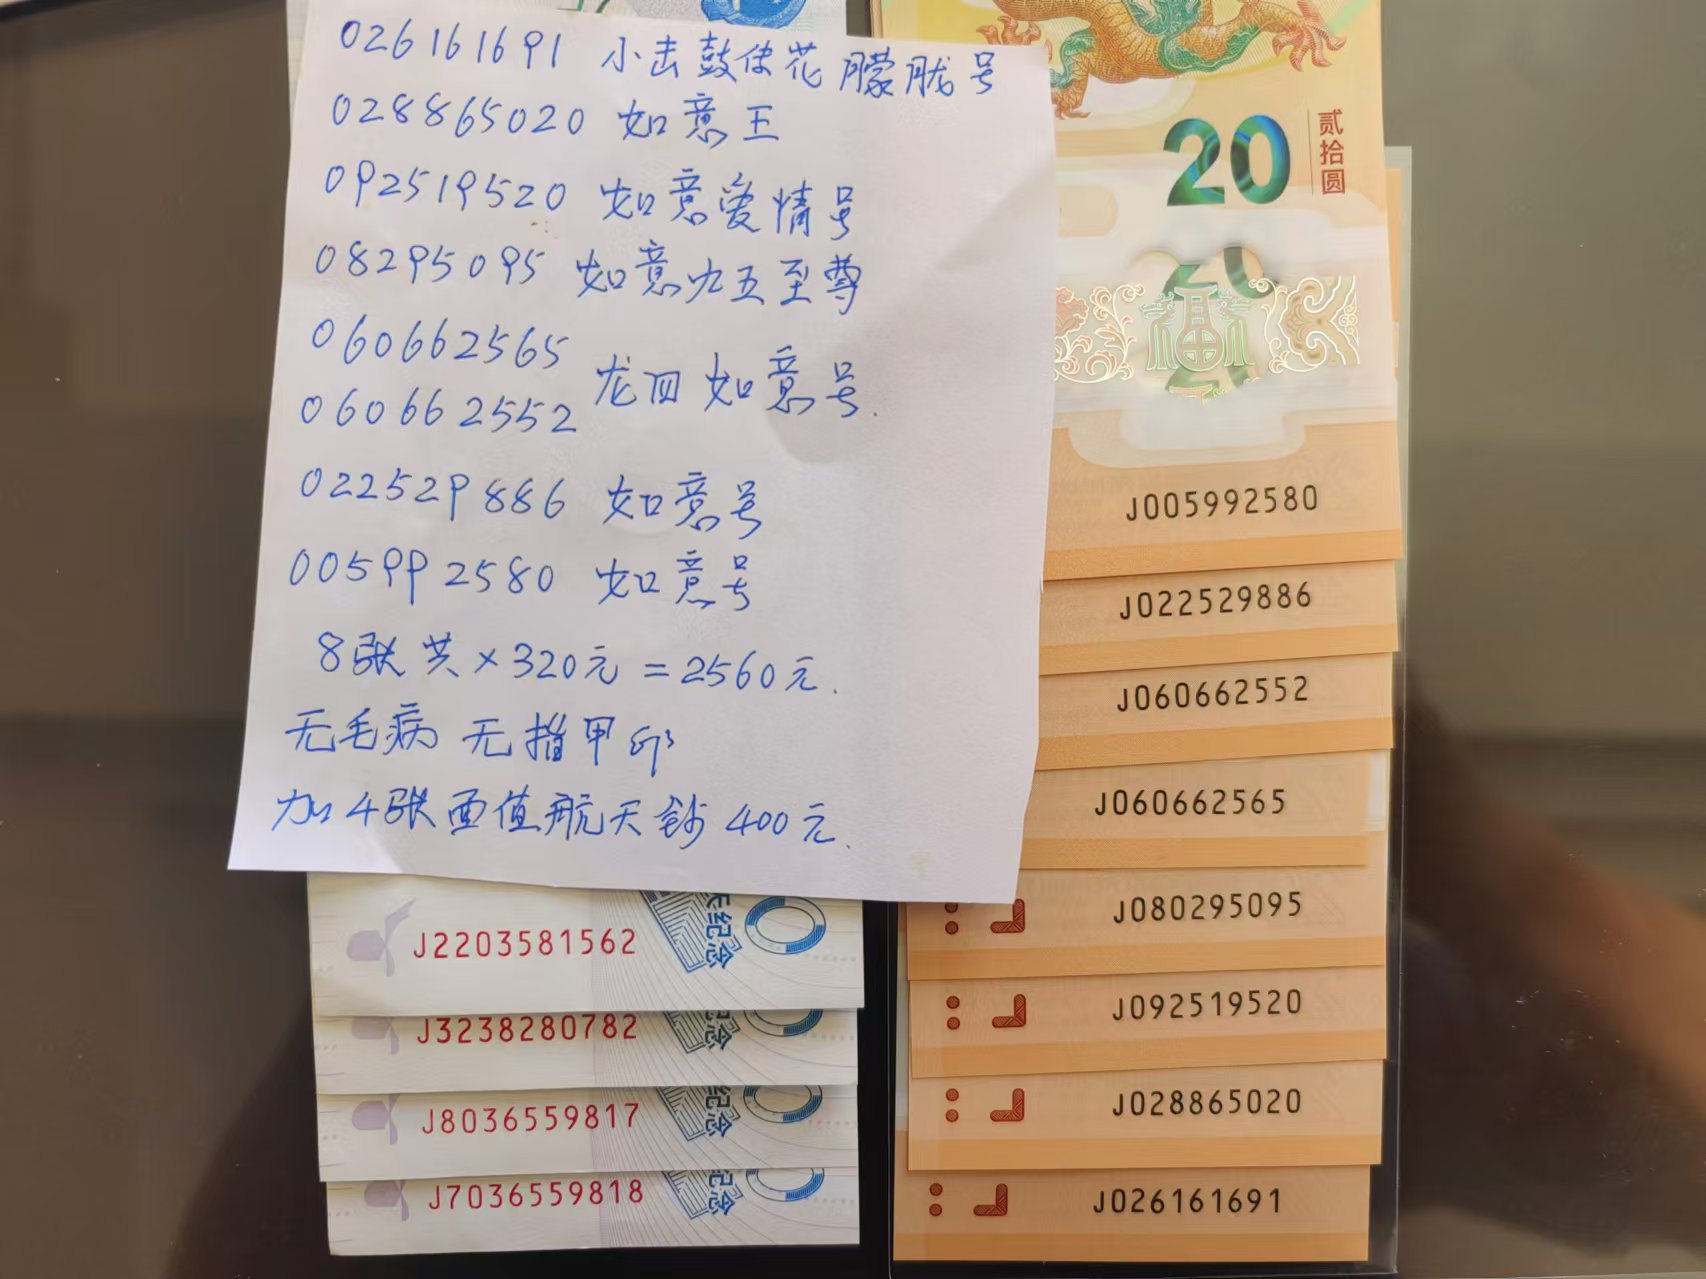 026161691 小击鼓传花朦胧号
028865020 如意王
092519520 如意爱情号
08295095 如意九五至尊
060662565
060662552
龙四如意号.
022529886 如意号
005992580 如意号
8张共×320元=2560元.
无毛病 无指甲印
加4张面值航天钞400元.
20
贰拾圆
20
福
J005992580
J022529886
J060662552
J060662565
J080295095
J092519520
J028865020
J026161691
J2203581562
天纪念
J3238280782
纪念
J8036559817
纪念
J7036559818
纪念